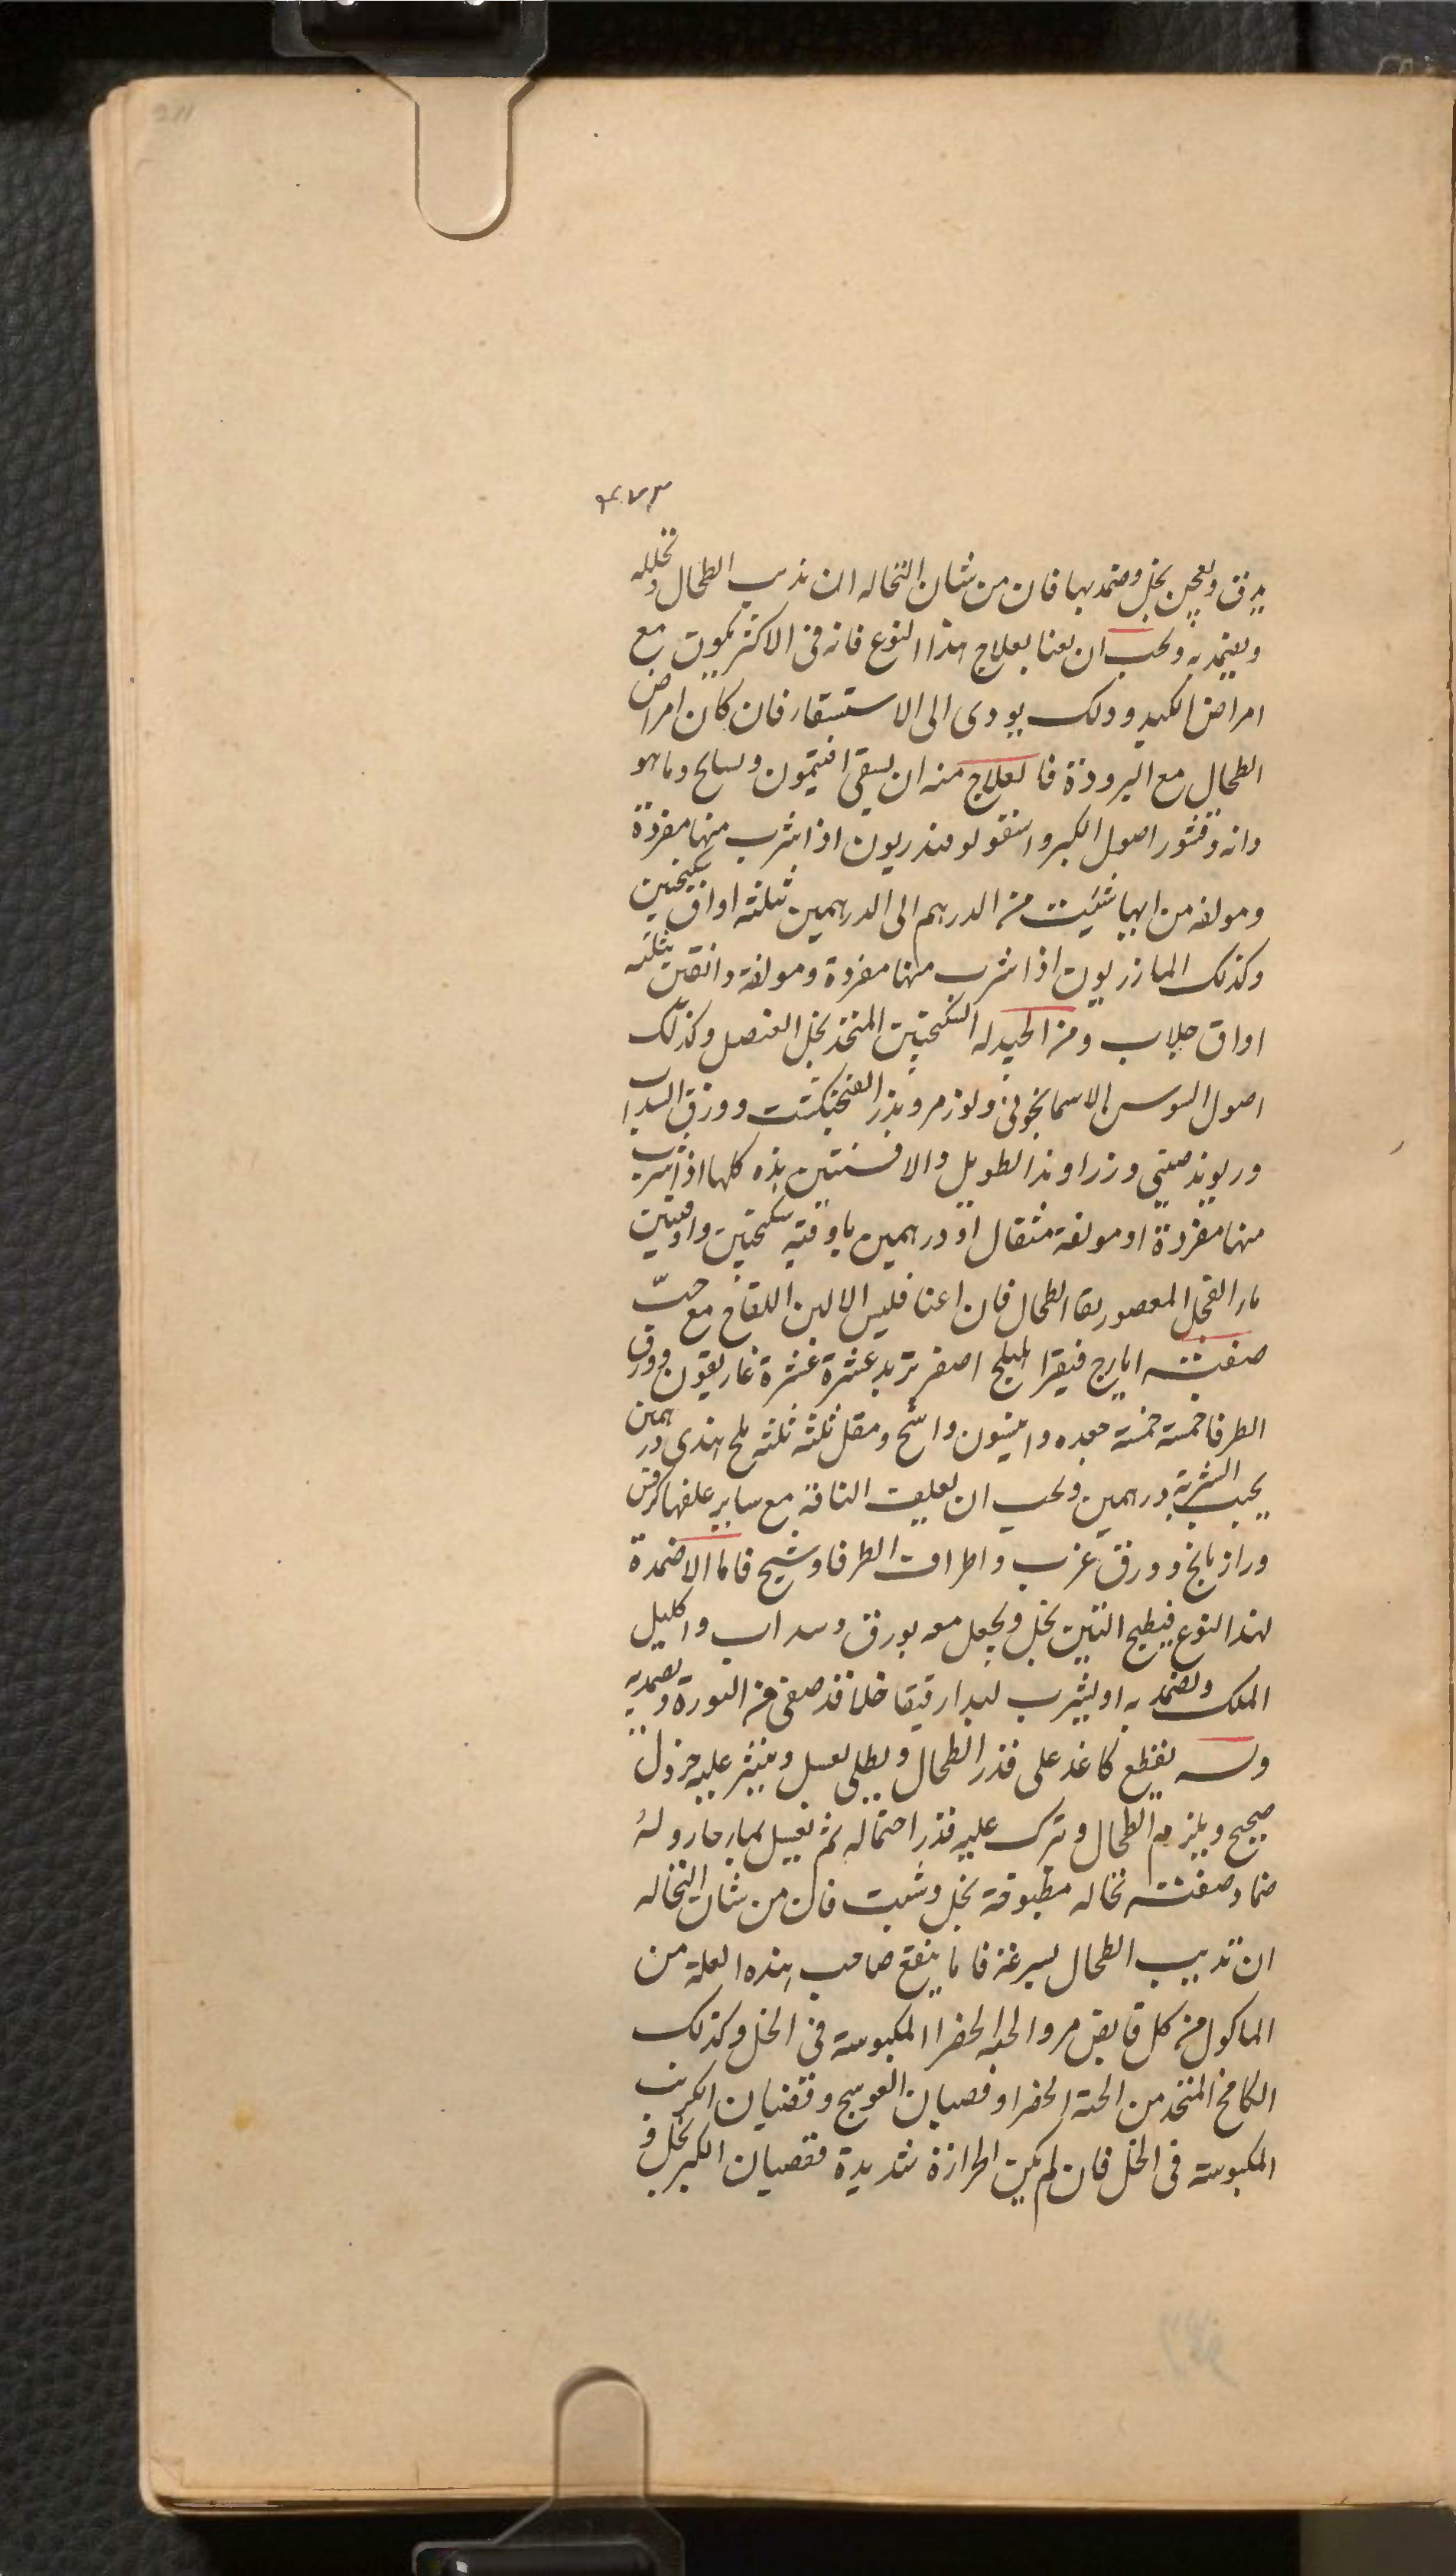 211
۴۷۳
يدق ويعجن بخل وضمد بها فان من شان النخاله ان تذيب الطحال وتحلله
ويضمد به ويجب ان يعنا بعلاج هذا النوع فانه فى الاكثر يكون مع
امراض الكبد وذلك يودى الى الاستسقاء فان كان امراض
الطحال مع البرودة فالعلاج منه ان يسقى افتيمون وما هو
دانه وقشور اصول الكبر واسقولوفندريون اذا شرب منها مفردة
ومولفه من ايها شئت من الدرهم الى الدرهمين ثلثة اواق سكنجبين
وكذلك المازريون اذا شرب منها مفردة ومولفة دانقين بثلثه
اواق جلاب ومن الجيد له السكنجبين المتخذ بخل العنصل وكذلك
اصول السوسن الاسمانجونى ولوز مر وبذر الفنجنكشت وورق السداب
وريوند صينى وزراوند الطويل والافسنتين هذه كلها اذا شرب
منها مفردة او مولفة مثقال او درهمين باوقية سكنجبين واوقيتين
ماء الفجل المعصور بقا الطحال فان اعنا فليس الا لبن اللقاح مع حب
صفته ايارج فيقرا هليلج اصفر تربد عشرة عشرة غاريقون وورق
الطرفا خمسة خمسة جعده وانيسون واشج ومقل ثلثه ثلثه ملح هندى درهمين
يحبب الشربة درهمين ويجب ان تعلف الناقة مع ساير علفها كرفس
ورازيانج وورق غرب واطراف الطرفا وشيح فاما الاضمدة
لهذا النوع فيطبخ التين بخل ويجعل معه بورق وسداب واكليل
الملك ويضمد به او يشرب لبدا رقيقا خلا قد صفى من النورة ويضمد به
وله يقطع كاغد على قدر الطحال ويطلى بعسل وينثر عليه خردل
صحيح ويلزم الطحال ويترك عليه قدر احتماله ثم يغسل بماء حار وله
ضماد صفته نخاله مطبوخة بخل وشبت فان من شان النخاله
ان تذيب الطحال بسرعة فاما ينفع صاحب هذه العلة من
الماكول من كل قابض مر والحبه الخضرا المكبوسه فى الخل وكذلك
الكامخ المتخذ من الحبة الخضرا وقضبان العوسج وقضبان الكرنب
المكبوسه فى الخل فان لم يكن الحرارة شديدة فقضبان الكبر بخل و